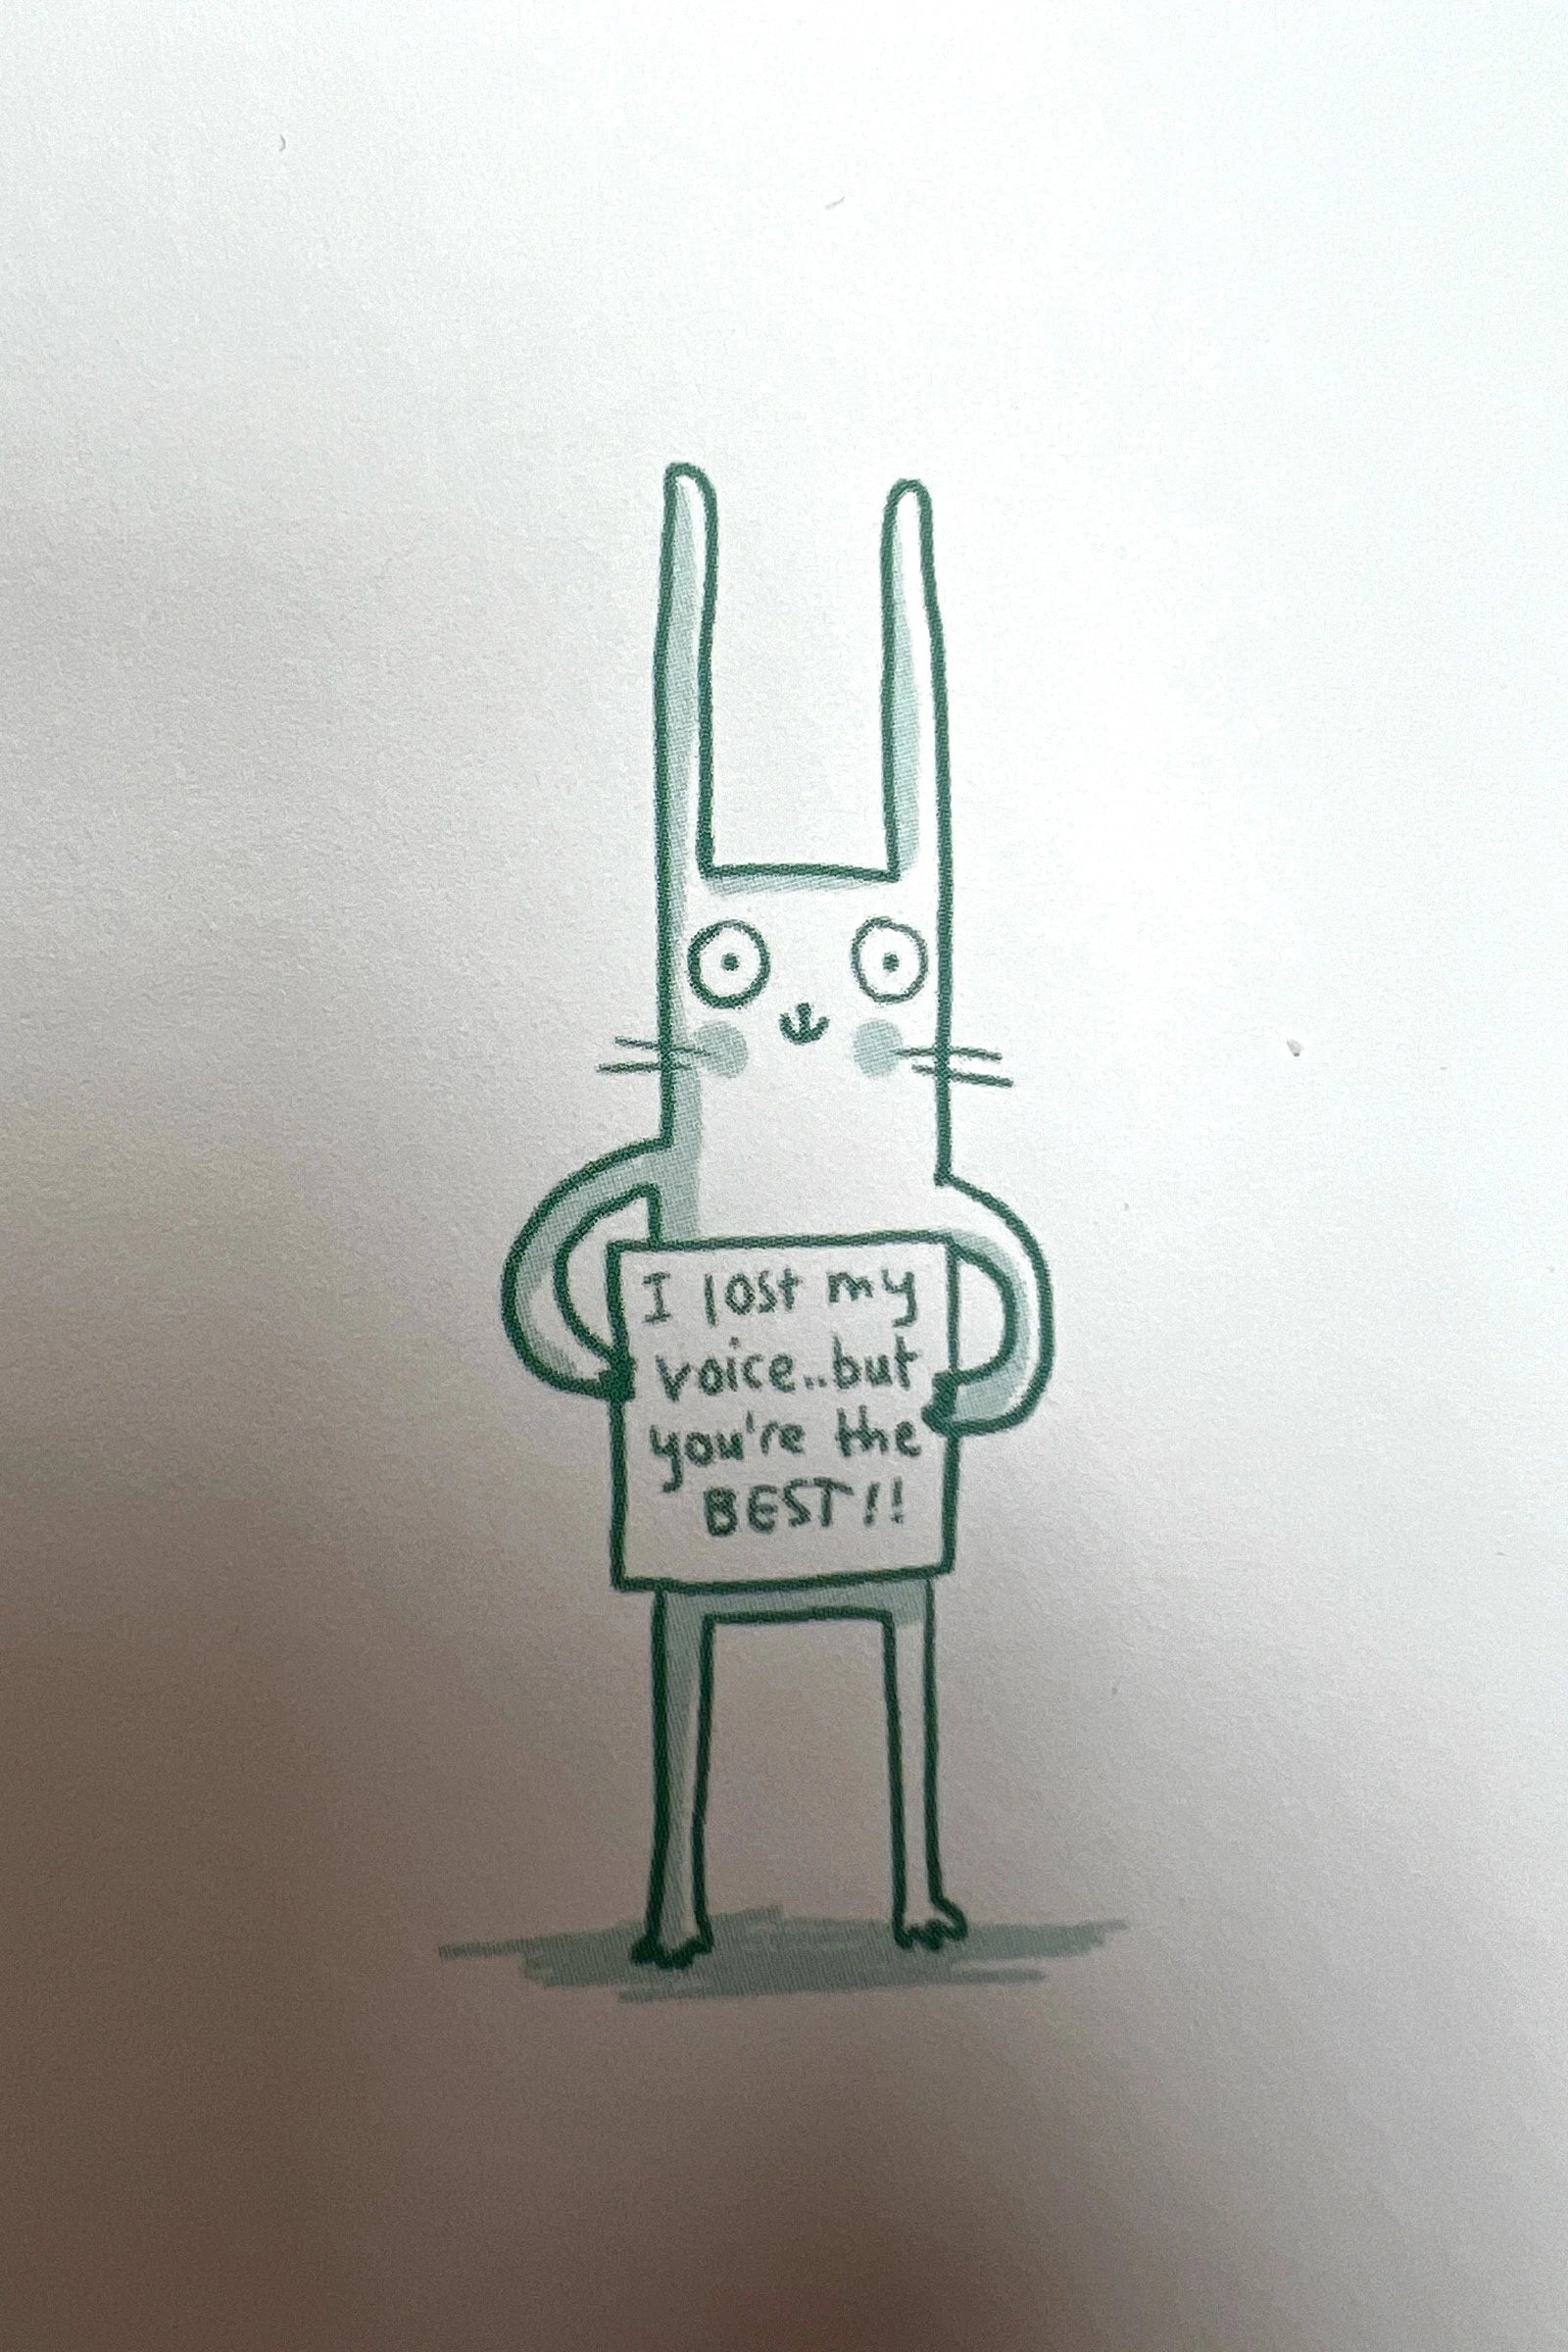 I lost my
voice..but
you're the
BEST!!